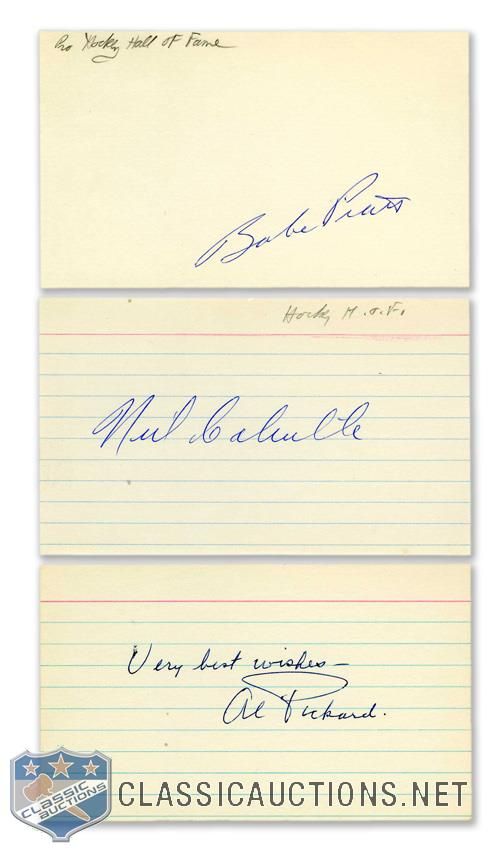 Pro Hockey Hall of Fame
Babe Pratt
Hockey H.o.F.
Neil Colville
Very best wishes—
Al Pickard.
CLASSIC
AUCTIONS
CLASSICAUCTIONS.NET